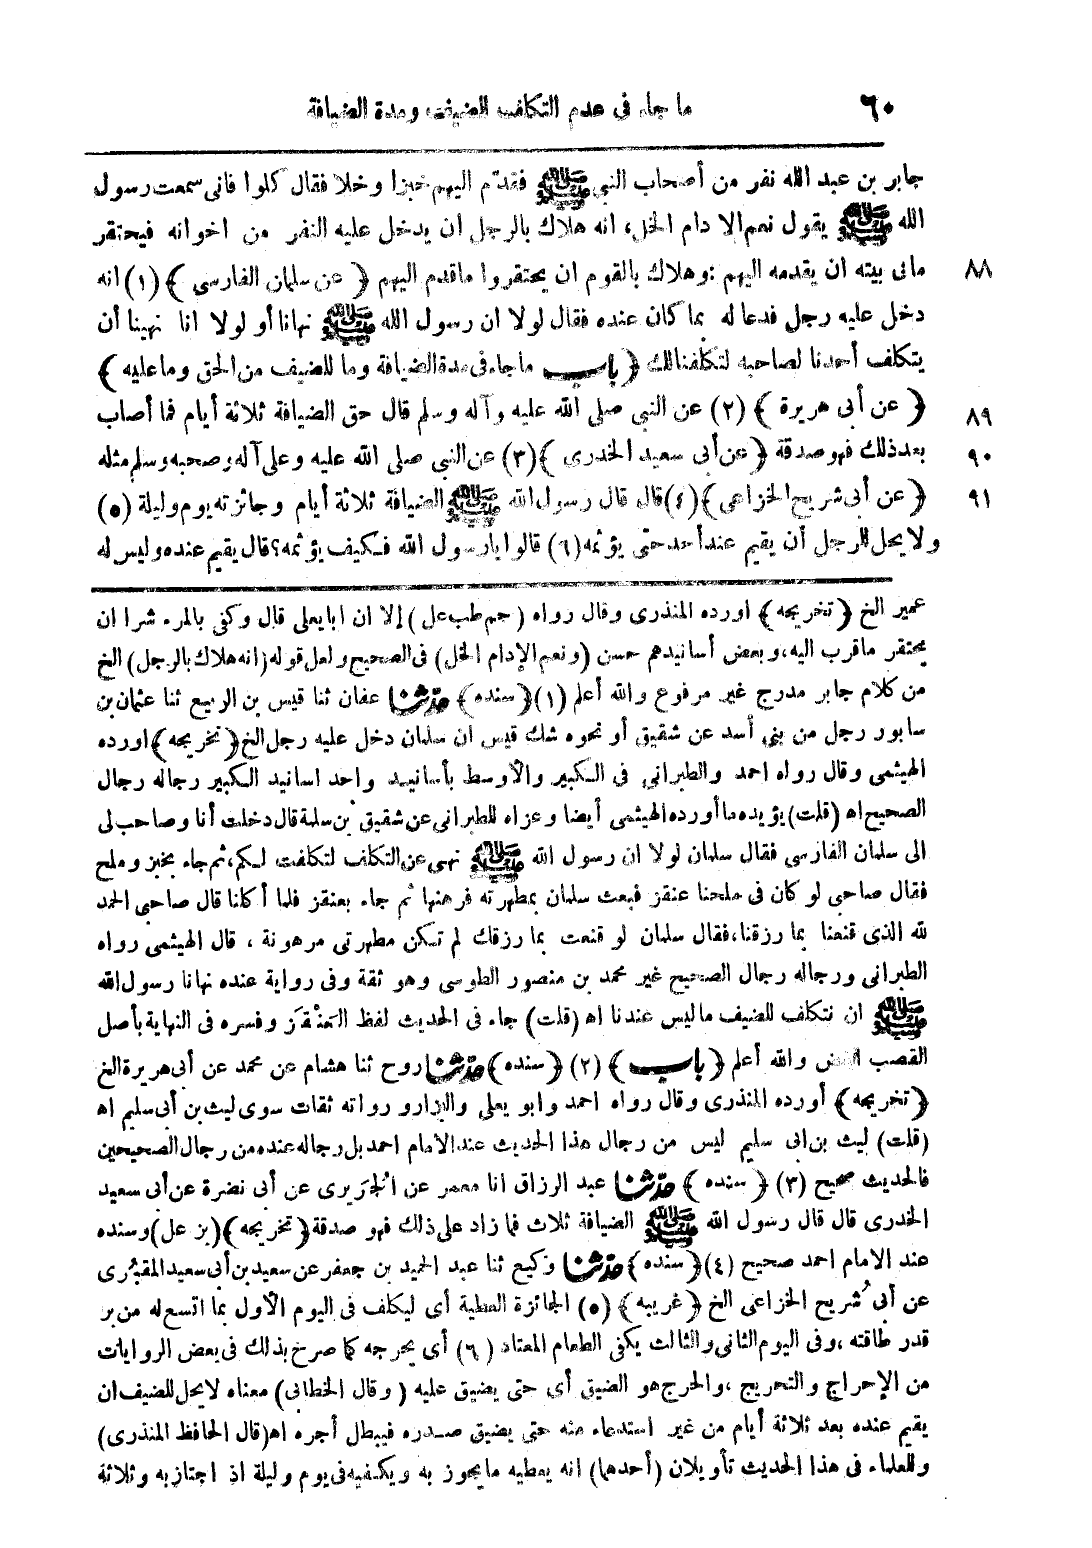 ٦٠ ما جاء فى عدم التكلف للضيف ومدة الضيافة
جابر بن عبد الله نفر من أصحاب النبى ﷺ فقدّم اليهم خبزا وخلا فقال كلوا فانى سمعت رسول
الله ﷺ يقول نعم الا دام الخل، انه هلاك بالرجل أن يدخل عليه النفر من اخوانه فيحتقر
مافى بيته ان يقدمه اليهم :وهلاك بالقوم ان يحتقروا ماقدم اليهم ﴿ عن سلمان الفارسى ﴾ (١) انه ٨٨
دخل عليه رجل فدعا له بما كان عنده فقال لولا ان رسول الله ﷺ نهانا أو لولا انا نهينا أن
يتكلف أحدنا لصاحبه لتكلفنالك ﴿ باب ما جاء فى مدة الضيافة وما للضيف من الحق وما عليه ﴾
﴿ عن أبى هريرة ﴾ (٢) عن النبى صلى الله عليه وآله وسلم قال حق الضيافة ثلاثة أيام فما أصاب ٨٩
بعدذلك فهو صدقة ﴿ عن أبى سعيد الخدرى ﴾ (٣) عن النبى صلى الله عليه وعلى آله وصحبه وسلم مثله ٩٠
﴿ عن أبى شريح الخزاعى ﴾ (٤) قال قال رسول الله ﷺ الضيافة ثلاثة أيام وجائزته يوم وليلة (٥) ٩١
ولا يحل للرجل أن يقيم عند أحد حتى يؤثمه (٦) قالوا يارسول الله فكيف يؤثمه؟ قال يقيم عنده وليس له
عمير الخ ﴿ تخريجه ﴾ اورده المنذرى وقال رواه (حم طب عل) إلا ان ابا يعلى قال وكفى بالمرء شرا ان
يحتقر ماقرب اليه، وبعض أسانيدهم حسن (ونعم الإدام الخل) فى الصحيح ولعل قوله (انه هلاك بالرجل) الخ
من كلام جابر مدرج غير مرفوع والله أعلم (١) ﴿ سنده ﴾ حدّثنا عفان ثنا قيس بن الربيع ثنا عثمان بن
سابور رجل من بنى أسد عن شقيق أو نحوه شك قيس ان سلمان دخل عليه رجل الخ ﴿ تخريجه ﴾ اورده
الهيثمى وقال رواه احمد والطبرانى فى الكبير والأوسط بأسانيد واحد اسانيد الكبير رجاله رجال
الصحيح اه (قلت) يؤيده ما أورده الهيثمى أيضا وعزاه للطبرانى عن شقيق بن سلمة قال دخلت أنا وصاحب لى
الى سلمان الفارسى فقال سلمان لولا ان رسول الله ﷺ نهى عن التكلف لتكلفت لكم، ثم جاء بخبز وملح
فقال صاحبى لو كان فى ملحنا عنقز فبعث سلمان بمطهرته فرهنها ثم جاء بعنقز فلما أكلنا قال صاحبى الحمد
لله الذى قنعنا بما رزقنا، فقال سلمان لو قنعت بما رزقك لم تكن مطهرتى مرهونة ، قال الهيثمى رواه
الطبرانى ورجاله رجال الصحيح غير محمد بن منصور الطوسى وهو ثقة وفى رواية عنده نهانا رسول الله
ﷺ ان نتكلف للضيف ماليس عندنا اه (قلت) جاء فى الحديث لفظ العنْقَز وفسره فى النهاية بأصل
القصب الغض والله أعلم ﴿ باب ﴾ (٢) ﴿ سنده ﴾ حدّثنا روح ثنا هشام عن محمد عن أبى هريرة الخ
﴿ تخريجه ﴾ أورده المنذرى وقال رواه احمد وابو يعلى والبزار ورواته ثقات سوى ليث بن أبى سليم اه
(قلت) ليث بن ابى سليم ليس من رجال هذا الحديث عند الامام احمد بل رجاله عنده من رجال الصحيحين
فالحديث صحيح (٣) ﴿ سنده ﴾ حدّثنا عبد الرزاق انا معمر عن الجُرَيرى عن أبى نضرة عن أبى سعيد
الخدرى قال قال رسول الله ﷺ الضيافة ثلاث فما زاد على ذلك فهو صدقة ﴿ تخريجه ﴾ (بز عل) وسنده
عند الامام احمد صحيح (٤) ﴿ سنده ﴾ حدّثنا وكيع ثنا عبد الحميد بن جعفر عن سعيد بن أبى سعيد المقبُرى
عن أبى شُريح الخزاعى الخ ﴿ غريبه ﴾ (٥) الجائزة العطية أى ليكلف فى اليوم الأول بما اتسع له من بر
قدر طاقته ،وفى اليوم الثانى والثالث يكفى الطعام المعتاد (٦) أى يحرجه كما صرح بذلك فى بعض الروايات
من الإحراج والتحريج ،والحرج هو الضيق أى حتى يضيق عليه (وقال الخطابى) معناه لا يحل للضيف ان
يقيم عنده بعد ثلاثة أيام من غير استدعاء منه حتى يضيق صدره فيبطل أجره اه (قال الحافظ المنذرى)
وللعلماء فى هذا الحديث تأويلان (أحدهما) انه يعطيه مايجوز به ويكفيه فى يوم وليلة اذ اجتاز به وثلاثة